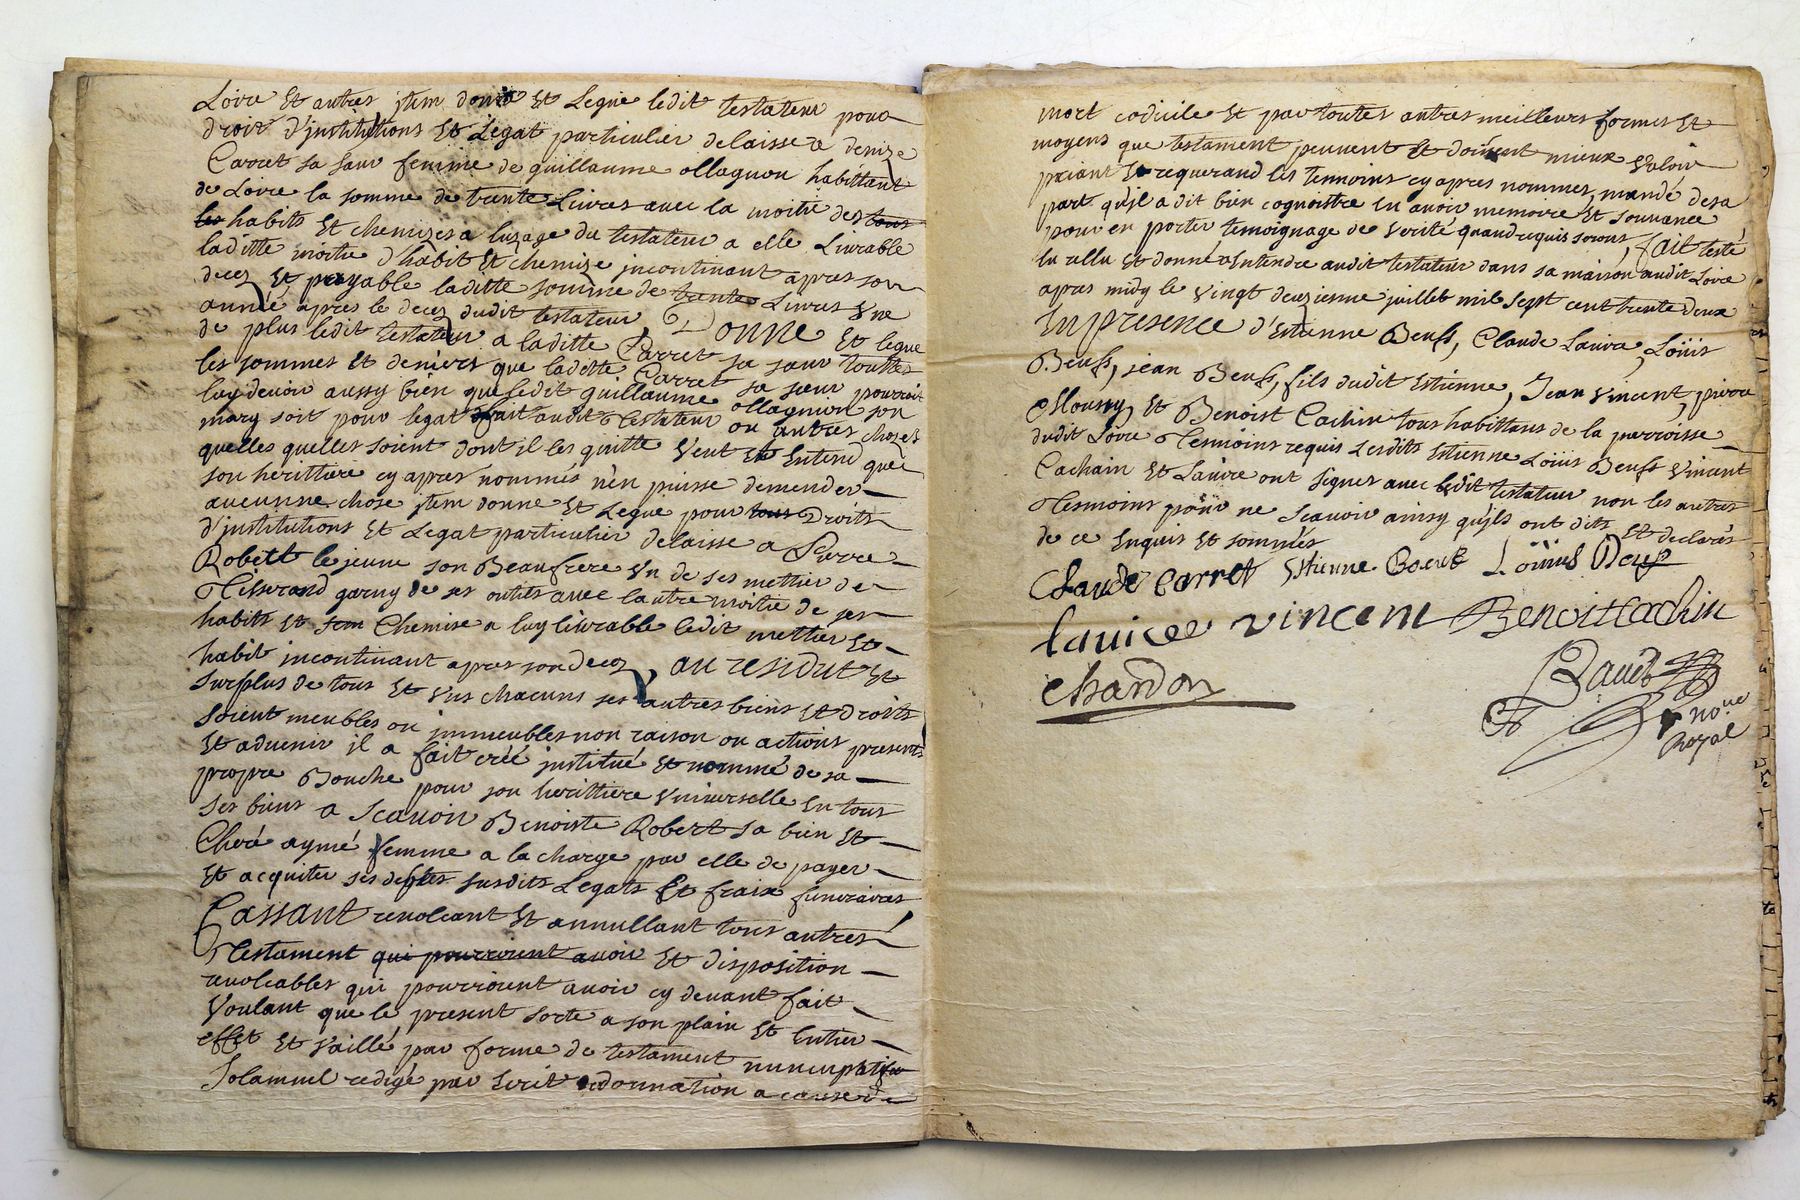 Loire Et autres jtem donne Et Legue ledit testateur pour
droit d'jnstitutions Et Legat particulier delaisse a denize
Carret sa sœur femme de guillaume ollagnon habittant
de Loire la somme de trente Livres avec la moitié des tous
les habits Et chemizes a luzage du testateur a elle Livrable
laditte moitie d'habit Et chemize incontinant apres son
decez Et payable laditte somme de trente Livres Vne
année apres le decez dudit testateur, Donne Et legue
de plus ledit testateur a laditte Carret sa sœur touttes
les sommes Et deniers que laditte Carret sa sœur pourroit
luy devoir aussy bien que ledit guillaume ollagnion son
mary soit pour legat fait audit Testateur ou autres choses
quelles quelles soient dont il les quitte Veut Et Entend que
son herittiere cy apres nommés n'en puisse demender
aucunne chose jtem donne Et Legue pour tous Droits
d'jnstitutions Et Legat particulier delaisse a Pierre
Robert le jeune son Beaufrere Vn de ses mettier de
Tisserand garny de ses outils avec lautre moitie de ses
habits Et son Chemise a luy livrable ledit mettier Et
habit incontinant apres son decez, au residut Et
surplus de tous Et Vns chacuns ses autres biens Et droits
soient meubles ou immeubles non raison ou actions presents
Et advenir il a fait créé institué Et nommé de sa
propre Bouche pour son herittiere Vniverselle En tous
ses biens a Scavoir Benoiste Robert sa bien Et
Cheré aymé femme a la charge par elle de payer
Et acquiter ses debtes susdits Legats Et fraix funeraires
Cassant revolcant Et annullant tous autres
Testament qui pourroient avoir Et disposition
revolcables qui pourroient avoir cy devant fait
Voulant que le present sorte a son plain Et Entier
effet Et Vaille par forme de testament nuncupatif
Solamnel redigé par Ecrit donnation a cause de
mort codicile Et par toutes autres meilleurs formes Et
moyens que testament peuvent Et doivent mieux Valoir
priant Et requerand les temoins cy apres nommes, mandé desa
part qu'jl a dit bien cognoistre En avoir memoire Et souvance
pour en porter temoignage de verité quand requis seront, fait testé
lu rellu Et donné a Entendre audit testateur dans sa maison audit Loire
apres midy le Vingt deuzienne juillet mil sept cent trente deux
En presence d'Estienne Beufs, Claude Lauire, Loüis
Beufs, jean Beufs, fils dudit Estienne, Jean Vincent, pierre
Mourry, Et Benoist Cachin tous habittans de la parroisse
dudit Loire Tesmoins requis Lesdits Estienne Loüis Beufs Vincent
Cachain Et Lauire ont signes avec ledit testateur non les autres
Tesmoins pour ne scavoir ainsy qu'jls ont dits Et declarés
de ce Enquis Et sommés
Claude Carret Estienne Boeuf Loüis Beuf
lauire vincent Benoit Cachin
Chardon
Et
no.re
Royal